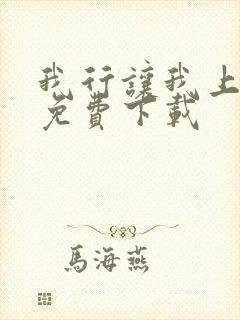 我行讓我上
免費下載
馬海燕